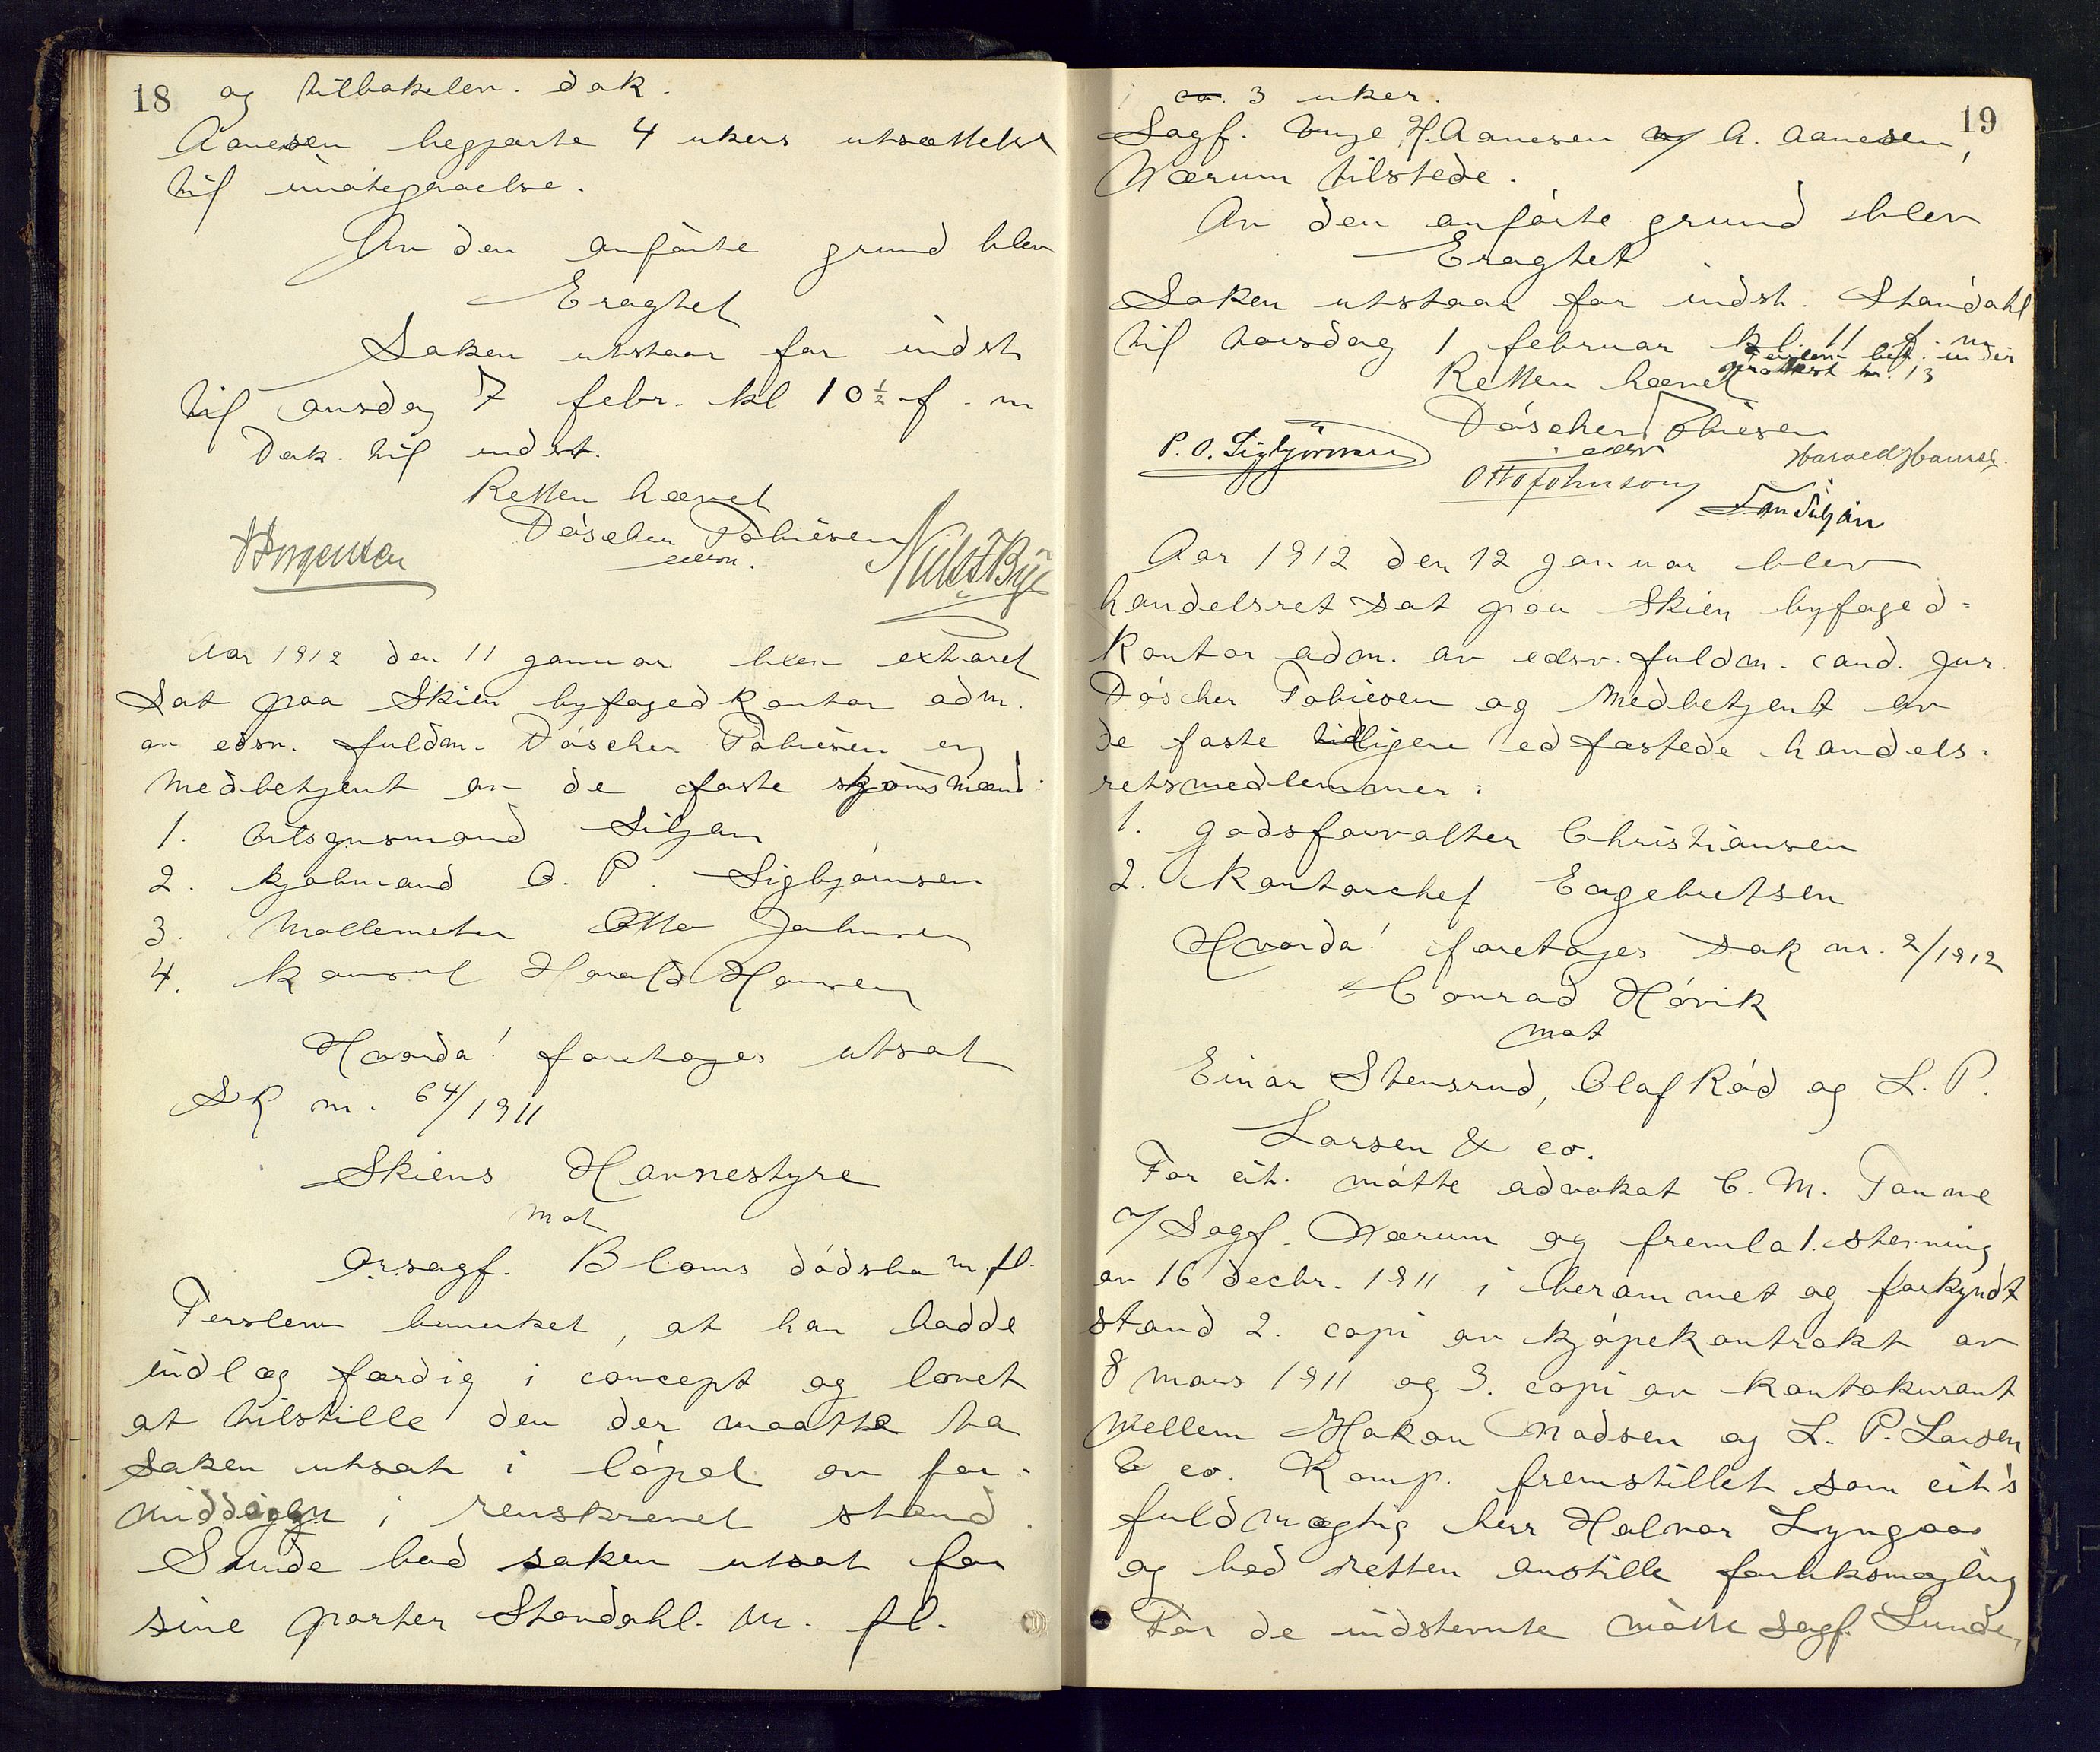 18 og tilbakelev. dok.
Aanesen begjærte 4 ukers utsættelse
til imøtegaaelse.
Av den anførte grund blev
Eragtet
Saken utstaar for indst
til onsdag 7 febr. kl 10½ f. m
Dok. til indst.
Retten hævet
Döscher Tobiesen
edsv.
Jørgensen
Nils J Bye
Aar 1912 den 11 januar blev extraret
sat paa Skien byfogedkontor adm.
av edsv. fuldm. Döscher Tobiesen og
medbetjent av de faste skjønsmænd:
1. Siljan
2. kjøbmand O. P. Sigbjørnsen
3. Møllemester Otto Johnsen
4. konsul Harald Hansen
Hvorda! foretages utsat
sk nr. 64/1911
Skiens Havnestyre
mot
o.r.sagf. Bloms dødsbo m. fl.
Terslew bemerket, at han hadde
indlæg færdig i concept og lovet
at tilstille den der maatte ta
saken utsat i løpet av for-
middagen i renskrevet stand.
Sunde bad saken utsat for
sine parter Standahl. m. fl.
19
ca. 3 uker.
Sagf. Unge, H. Aanesen v/ A. Aanesen,
Wærum tilstede.
Av den anførte grund blev
Eragtet
Saken utstaar for indst. Standahl
til torsdag 1 februar kl. 11 f. m
Retten hævet
Döscher Tobiesen
edsv
P. O. Sigbjørnsen
Harald Hansen
Otto Johnsen
Siljan
Aar 1912 den 12 januar blev
handelsret sat paa Skien byfoged-
kontor adm. av edsv. fuldm. cand. jur.
Döscher Tobiesen og medbetjent av
de faste tidligere edfæstede handels-
retsmedlemmer:
1. godsforvalter Christiansen
2. Kontorchef Engebretsen
Hvorda! foretages sak nr. 2/1912
Conrad Høvik
mot
Einar Stensrud, Olaf Rød og L. P.
Larsen & co.
For cit. møtte advokat C. M. Tanme
v/ Sagf. Wærum og fremla 1. stevning
av 16 decbr. 1911 i berammet og forkyndt
stand 2. copi av kjøpekontrakt av
8 mars 1911 og 3. copi av kontokurant
mellem Hakon Madsen og L. P. Larsen
& co. Komp. fremstillet som cit's
fuldmægtig herr Halvor Lyngaas
og bad retten anstille forliksmægling
For de indstevnte møtte sagf. Sunde,